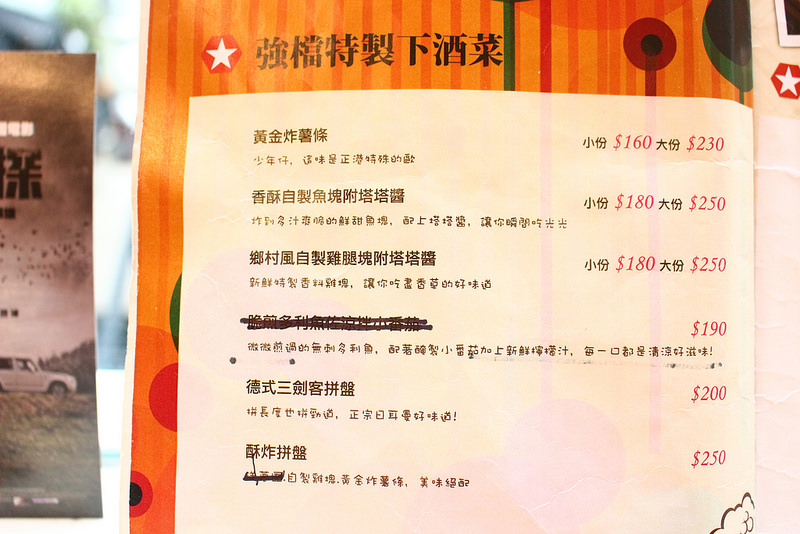 強檔特製下酒菜
黃金炸薯條 小份 $160 大份 $230
少年仔，這味是正港特殊的歐
香酥自製魚塊附塔塔醬 小份 $180 大份 $250
炸到多汁爽脆的鮮甜魚塊，配上塔塔醬，讓你瞬間吃光光
鄉村風自製雞腿塊附塔塔醬 小份 $180 大份 $250
新鮮特製香料雞塊，讓你吃盡香草的好味道
脆煎多利魚佐涼拌小番茄 $190
微微煎過的無刺多利魚，配著醃製小番茄加上新鮮檸檬汁，每一口都是清涼好滋味！
德式三劍客拼盤 $200
拼長度也拼勁道，正宗日耳曼好味道！
酥炸拼盤 $250
自製雞塊.黃金炸薯條，美味絕配
電影
探